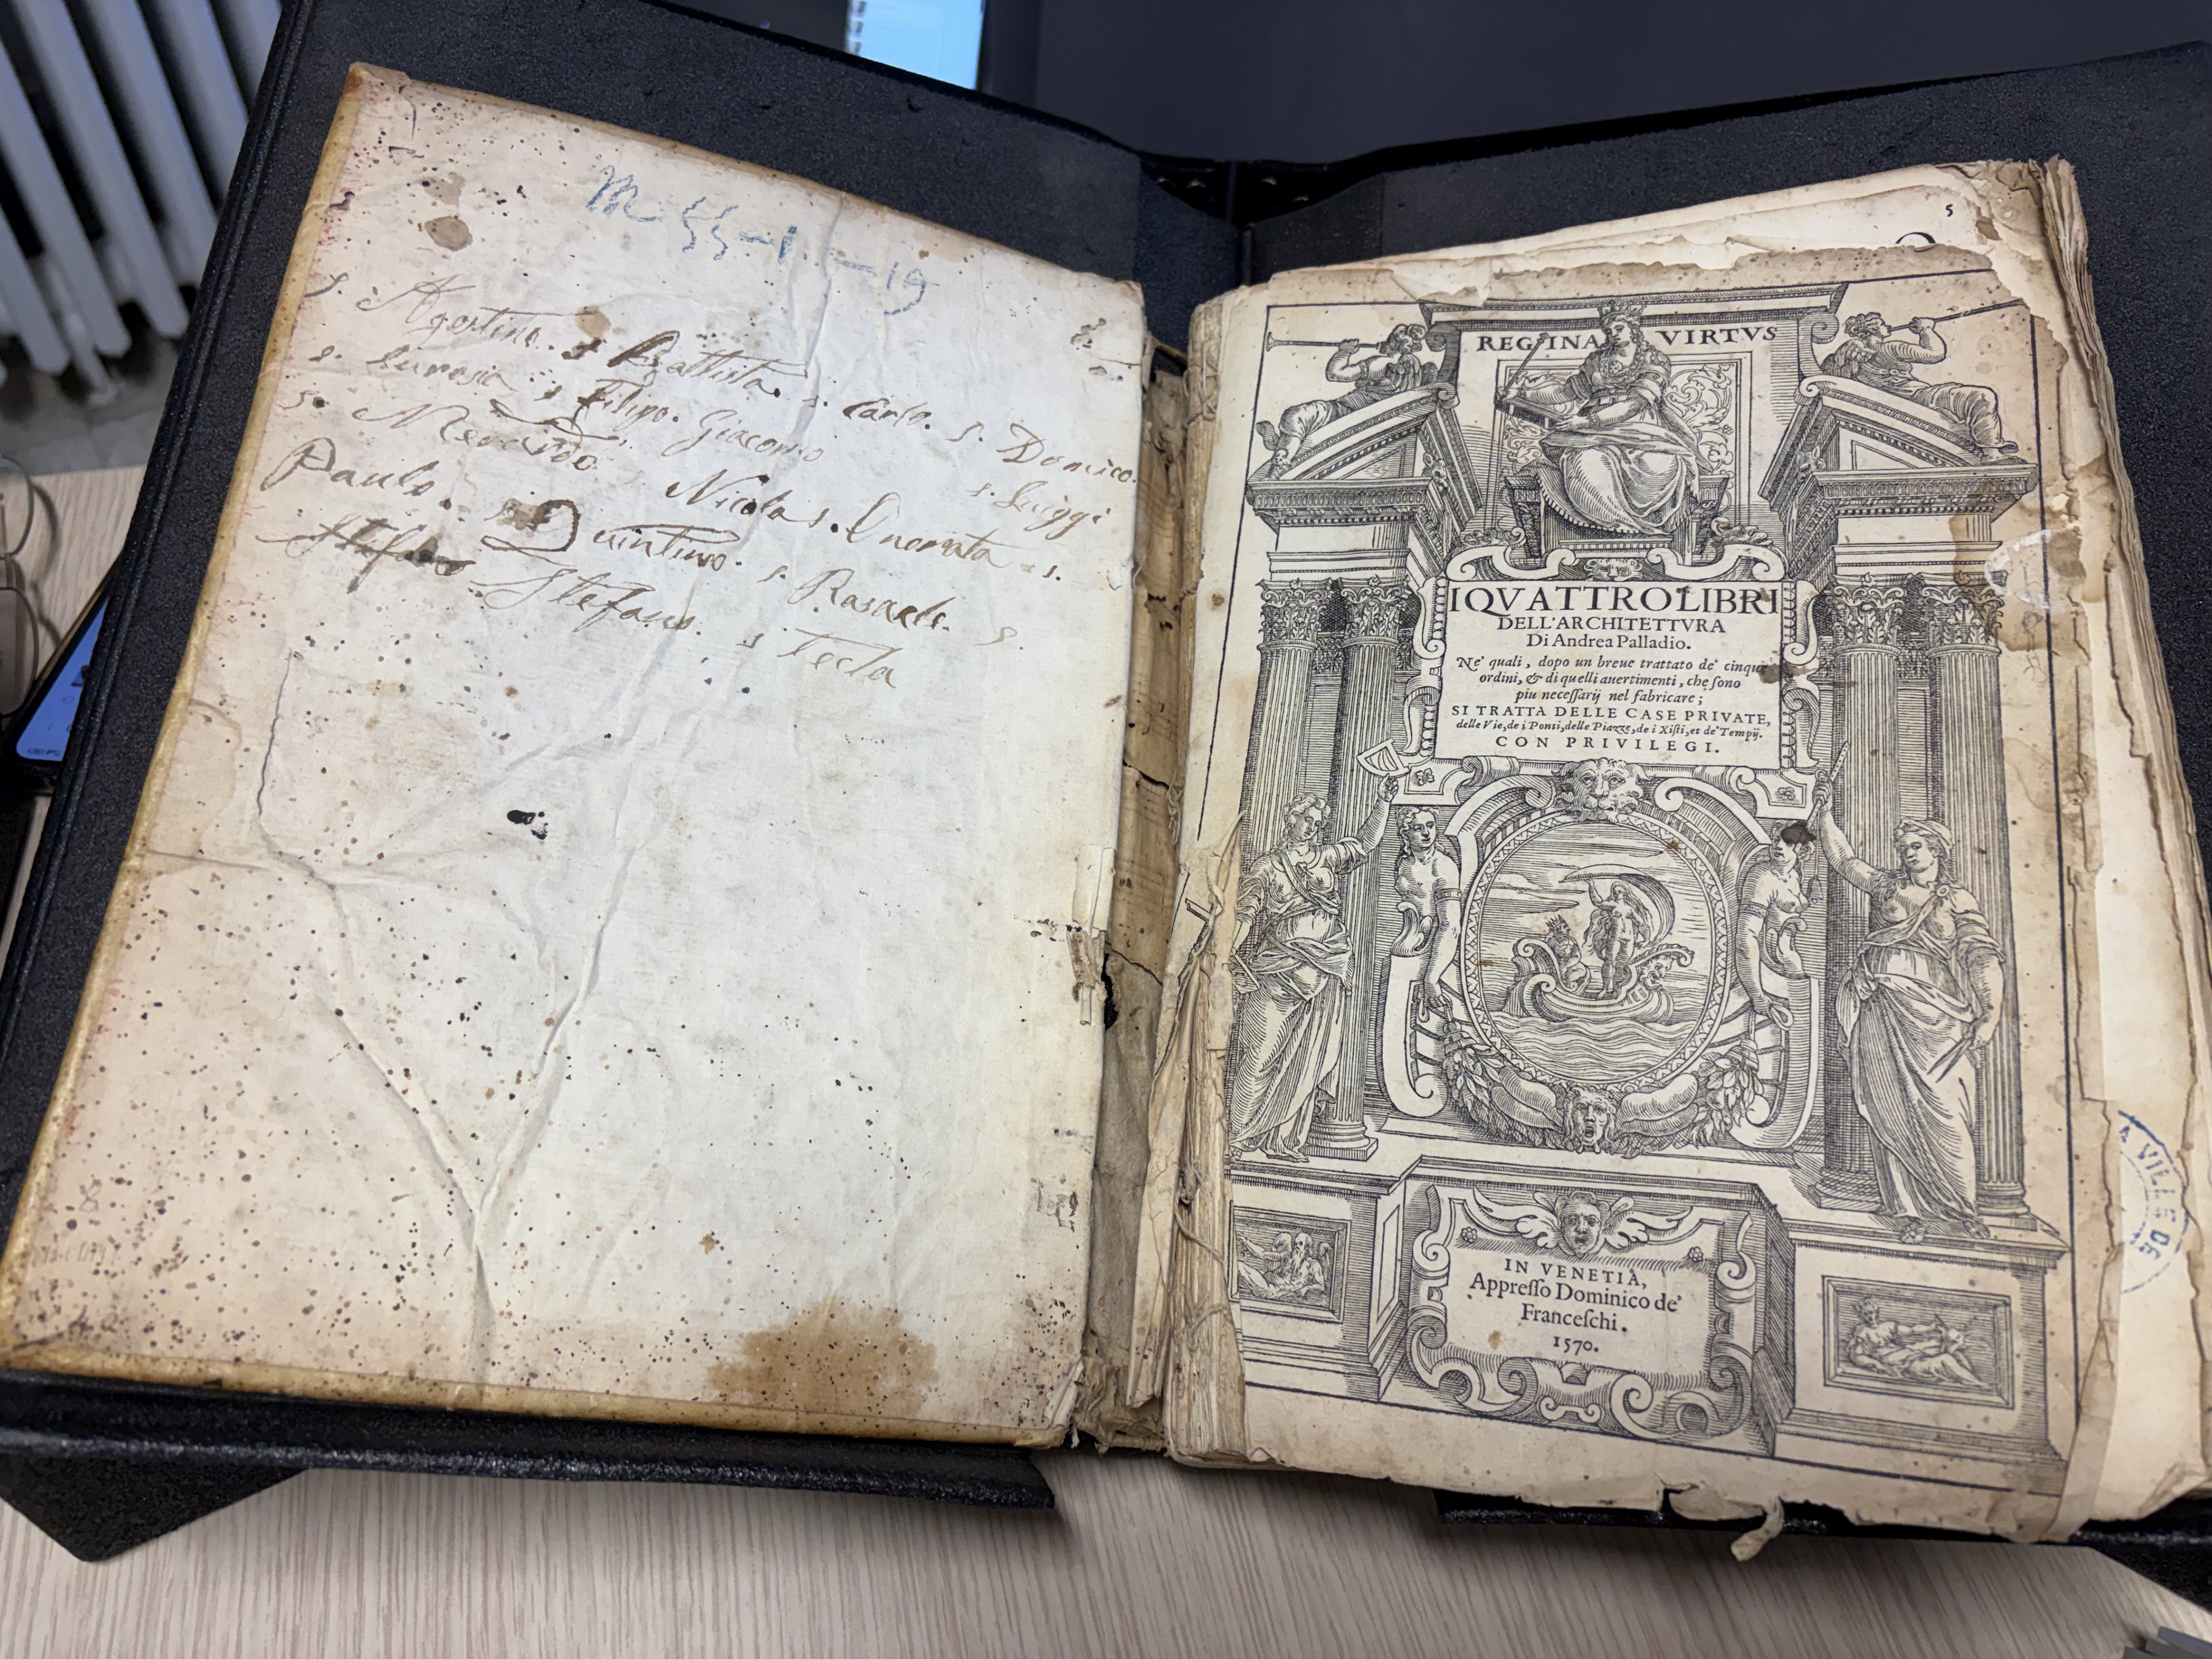 M-55-1-19
s. Agostino. s Battista. s. Carlo. s. Domico.
s. Eurosia. s Filipo. Giacomo s. Luiggi
s. Medardo. Nicola s. Onorata. s.
Paulo. s Quintino. s. Rasaele. s.
Stefano Stefano. s Tecla
5
REGINA VIRTVS
I QVATTRO LIBRI
DELL'ARCHITETTVRA
Di Andrea Palladio.
Ne' quali, dopo un breue trattato de' cinque
ordini, & di quelli auertimenti, che sono
piu necessarij nel fabricare;
SI TRATTA DELLE CASE PRIVATE,
delle Vie, de i Ponti, delle Piazze, de i Xisti, et de' Tempij.
CON PRIVILEGI.
IN VENETIA,
Appresso Dominico de'
Franceschi.
1570.
A VILLE DE